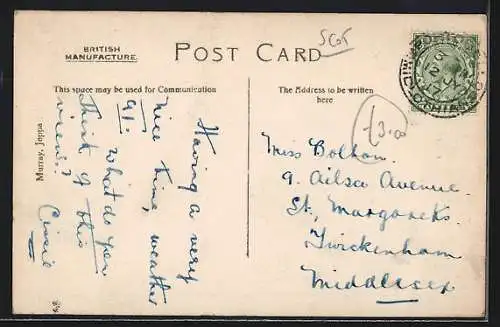 BRITISH
MANUFACTURE.
POST CARD
Scot
This space may be used for Communication
The Address to be written
here
£3.00
Having a very
nice time, weather
A1. What do you
think of this
view??
Cissie
Miss Boltom.
9. Ailsa Avenue.
St. Margarets.
Twickenham
Middlesex
Murray, Joppa.